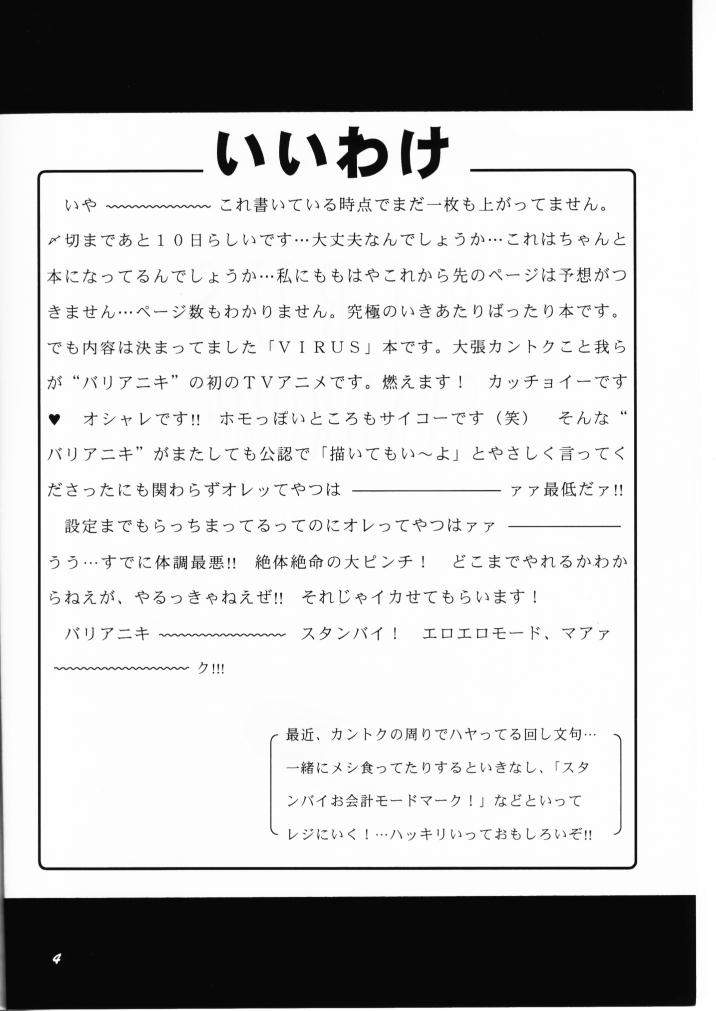 いいわけ
いや 〜〜〜〜〜〜 これ書いている時点でまだ一枚も上がってません。
〆切まであと１０日らしいです…大丈夫なんでしょうか…これはちゃんと
本になってるんでしょうか…私にももはやこれから先のページは予想がつ
きません…ページ数もわかりません。究極のいきあたりばったり本です。
でも内容は決まってました「ＶＩＲＵＳ」本です。大張カントクこと我ら
が“バリアニキ”の初のＴＶアニメです。燃えます！　カッチョイーです
♥　オシャレです!!　ホモっぽいところもサイコーです（笑）　そんな“
バリアニキ”がまたしても公認で「描いてもい〜よ」とやさしく言ってく
ださったにも関わらずオレッてやつは ―――――――― ァァ最低だァ!!
設定までもらっちまってるってのにオレってやつはァァ ――――――
うう…すでに体調最悪!!　絶体絶命の大ピンチ！　どこまでやれるかわか
らねえが、やるっきゃねえぜ!!　それじゃイカせてもらいます！
バリアニキ 〜〜〜〜〜〜〜 スタンバイ！　エロエロモード、マアァ
〜〜〜〜〜〜〜 ク!!!
最近、カントクの周りでハヤってる回し文句…
一緒にメシ食ってたりするといきなし、「スタ
ンバイお会計モードマーク！」などといって
レジにいく！…ハッキリいっておもしろいぞ!!
4